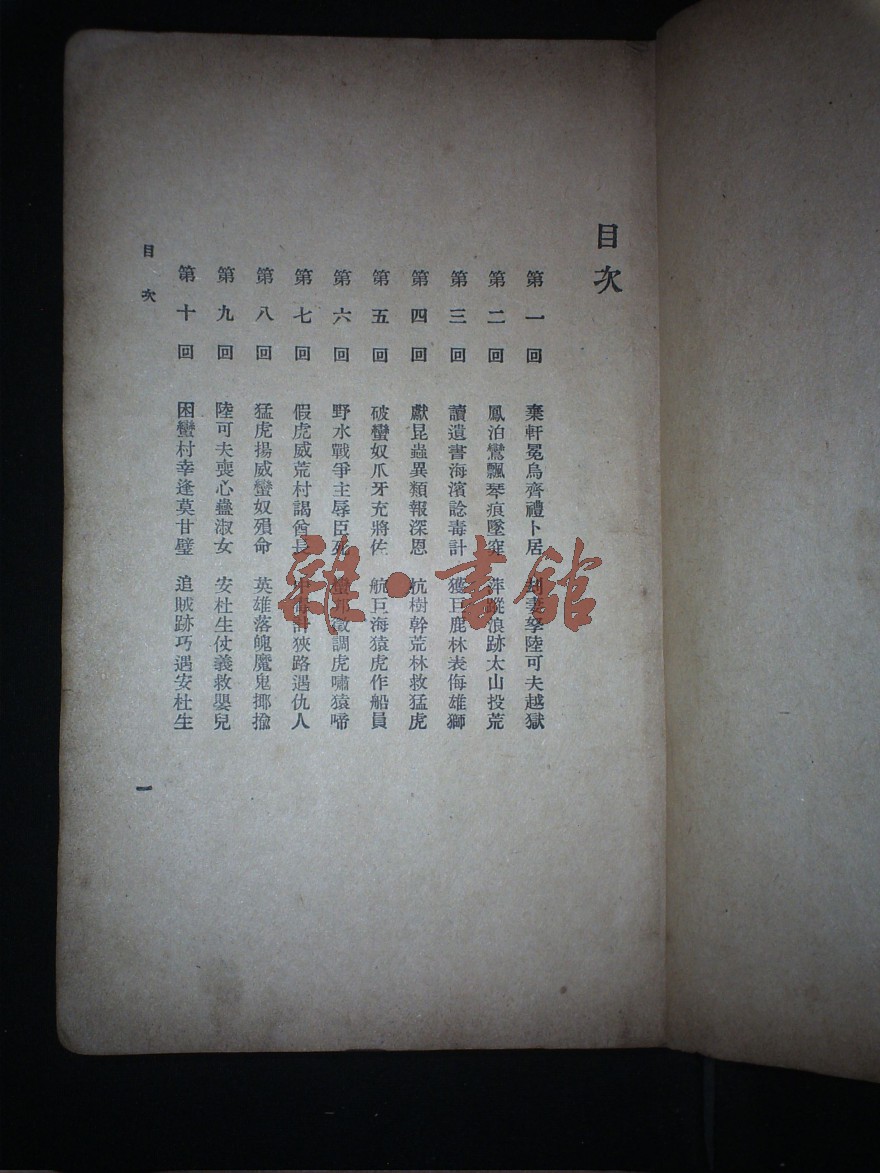 目次
第一回 棄軒冕烏齊禮卜居 劫妻孥陸可夫越獄
第二回 鳳泊鸞飄琴痕墜 萍蹤浪跡太山投荒
第三回 讀遺書海濱諗毒計 獲巨鹿林表侮雄獅
第四回 獻昆蟲異類報深恩 抗樹幹荒林救猛虎
第五回 破蠻奴爪牙充將佐 航巨海猿虎作船員
第六回 野水戰爭主辱臣死 調虎嘯猿啼
第七回 假虎威荒村謁酋長 計狹路遇仇人
第八回 猛虎揚威蠻奴殞命 英雄落魄魔鬼揶揄
第九回 陸可夫喪心蠱淑女 安杜生仗義救嬰兒
第十回 困蠻村幸逢莫甘璧 追賊跡巧遇安杜生
目次
一
雜·書館